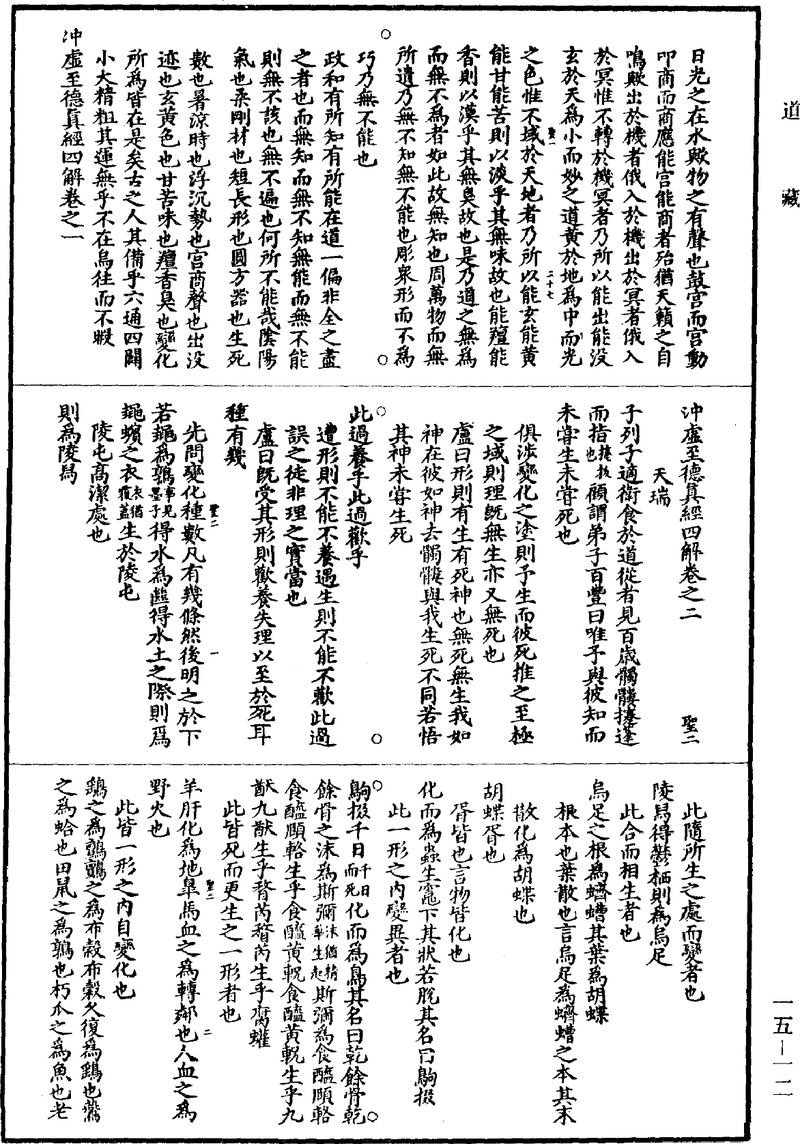 道藏
日光之在水歟物之有聲也鼓宮而宮動
叩商而商應能宮能商者殆猶天籟之自
鳴歟出於機者俄入於機出於冥者俄入
於冥惟不轉於機冥者乃所以能出能沒
玄於天為小而妙之道黃於地為中而光
聖一
二十七
之色惟不域於天地者乃所以能玄能黃
能甘能苦則以淡乎其無味故也能羶能
香則以漠乎其無臭故也是乃道之無為
而無不為者如此故無知也周萬物而無
所遺乃無不知無不能也彫衆形而不為
巧乃無不能也
政和有所知有所能在道一偏非全之盡
之者也而無知而無不知無能而無不能
則無不該也無不遍也何所不能哉陰陽
氣也柔剛材也短長形也圓方器也生死
數也暑涼時也浮沉勢也宮商聲也出沒
迹也玄黃色也甘苦味也羶香臭也變化
所為皆在是矣古之人其備乎六通四闢
小大精粗其運無乎不在烏往而不暇
冲虛至德真經四解卷之一
冲虛至德真經四解卷之二
聖二
天瑞
子列子適衛食於道從者見百歲髑髏攓蓬
而指攓拔也顧謂弟子百豐曰唯予與彼知而
未嘗生未嘗死也
俱涉變化之塗則予生而彼死推之至極
之域則理既無生亦又無死也
盧曰形則有生有死神也無死無生我如
神在彼如神去髑髏與我生死不同若悟
其神未嘗生死
此過養乎此過歡乎
遭形則不能不養遇生則不能不歡此過
誤之徒非理之實當也
盧曰既受其形則歡養失理以至於死耳
種有幾
先問變化種數凡有幾條然後明之於下
聖二
一
若䵷為鶉事見墨子得水為㡭得水土之際則為
䵷蠙之衣衣猶覆蓋生於陵屯
陵屯高潔處也
則為陵舄
此隨所生之處而變者也
陵舄得鬱栖則為烏足
此合而相生者也
烏足之根為蠐螬其葉為胡蝶
根本也葉散也言烏足為蠐螬之本其末
散化為胡蝶也
胡蝶胥也
胥皆也言物皆化也
化而為蟲生竈下其狀若脫其名曰鴝掇
此一形之內變異者也
鴝掇千日千日而死化而為鳥其名曰乾餘骨乾
餘骨之沫為斯彌沫猶精華生起斯彌為食醯頤輅
食醯頤輅生乎食醯黃軦食醯黃軦生乎九
猷九猷生乎瞀芮瞀芮生乎腐蠸
此皆死而更生之一形者也
羊肝化為地臯馬血之為轉鄰也人血之為
聖二
二
野火也
此皆一形之內自變化也
鷂之為鸇鸇之為布穀布穀久復為鷂也鷰
之為蛤也田鼠之為鶉也朽瓜之為魚也老
一五—一二